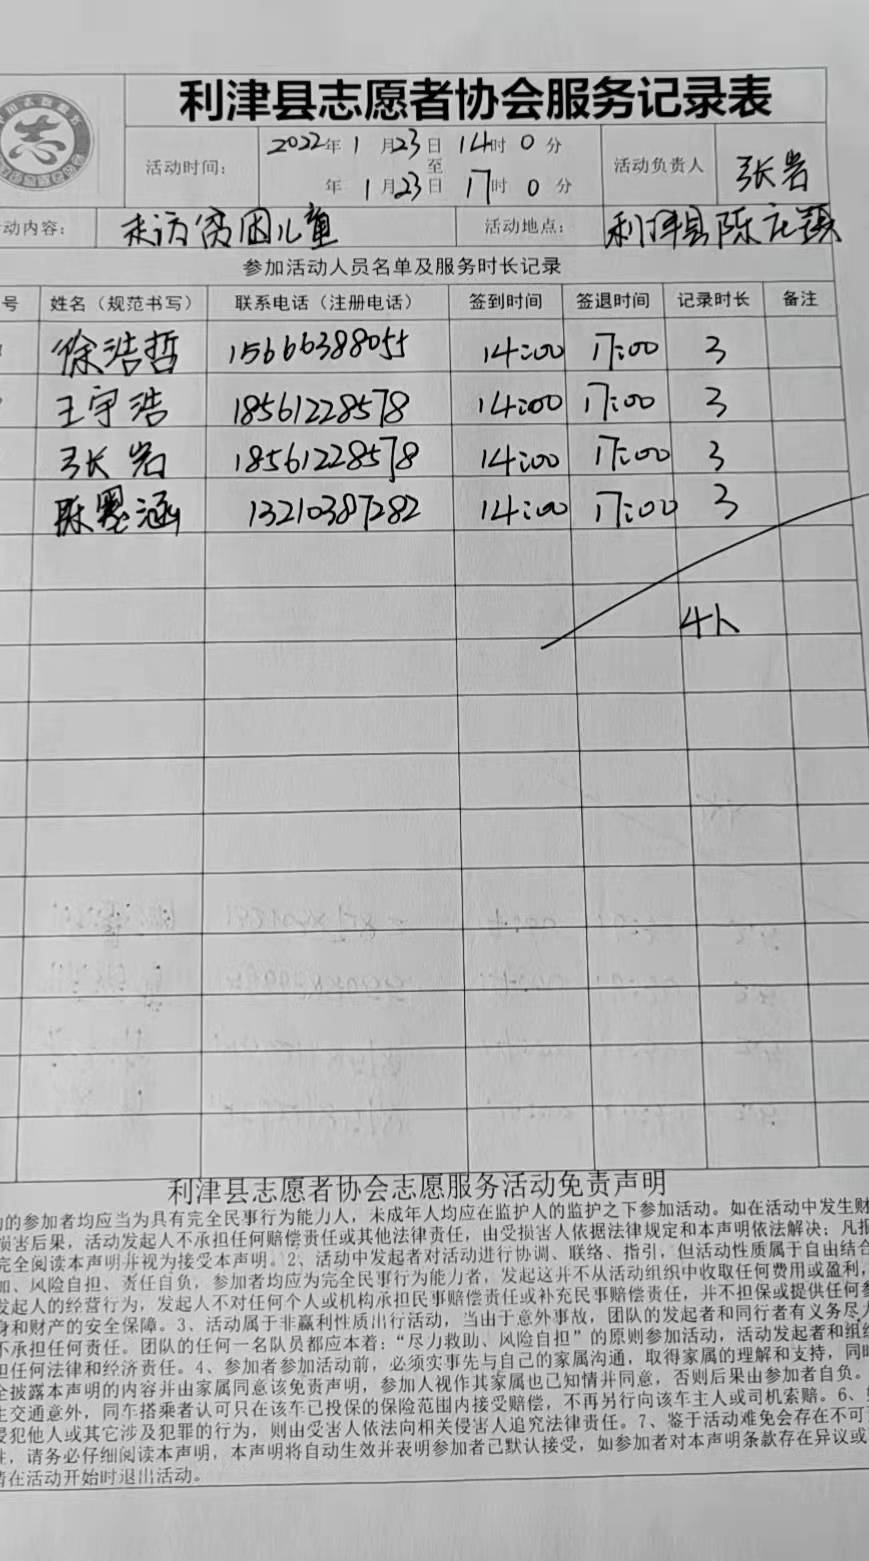 利津县志愿者协会服务记录表
志
活动时间: 2022年1月23日14时0分
至
年1月23日17时0分
活动负责人 张岩
动内容: 走访贫困儿童 活动地点: 利津县陈庄镇
参加活动人员名单及服务时长记录
号 姓名（规范书写） 联系电话（注册电话） 签到时间 签退时间 记录时长 备注
徐浩哲 15666388055 14:00 17:00 3
王宇浩 18561228578 14:00 17:00 3
张岩 18561228578 14:00 17:00 3
陈墨涵 13210387282 14:00 17:00 3
4人
利津县志愿者协会志愿服务活动免责声明
的参加者均应当为具有完全民事行为能力人，未成年人均应在监护人的监护之下参加活动。如在活动中发生财
损害后果，活动发起人不承担任何赔偿责任或其他法律责任，由受损害人依据法律规定和本声明依法解决；凡报
完全阅读本声明并视为接受本声明。2、活动中发起者对活动进行协调、联络、指引，但活动性质属于自由结合
加、风险自担、责任自负，参加者均应为完全民事行为能力者，发起这并不从活动组织中收取任何费用或盈利，
发起人的经营行为，发起人不对任何个人或机构承担民事赔偿责任或补充民事赔偿责任，并不担保或提供任何参
身和财产的安全保障。3、活动属于非赢利性质出行活动，当由于意外事故，团队的发起者和同行者有义务尽力
不承担任何责任。团队的任何一名队员都应本着：“尽力救助、风险自担”的原则参加活动，活动发起者和组织
担任何法律和经济责任。4、参加者参加活动前，必须实事先与自己的家属沟通，取得家属的理解和支持，同时
全披露本声明的内容并由家属同意该免责声明，参加人视作其家属也已知情并同意，否则后果由参加者自负。
生交通意外，同车搭乘者认可只在该车已投保的保险范围内接受赔偿，不再另行向该车主人或司机索赔。6、
侵犯他人或其它涉及犯罪的行为，则由受害人依法向相关侵害人追究法律责任。7、鉴于活动难免会存在不可
性，请务必仔细阅读本声明，本声明将自动生效并表明参加者已默认接受，如参加者对本声明条款存在异议或
请在活动开始时退出活动。